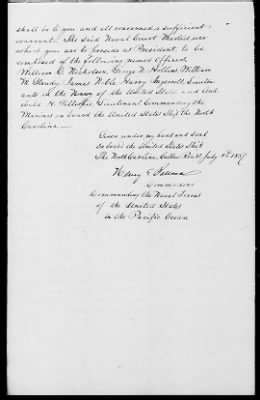 shall be to you and all concerned a sufficient
warrant. The said Naval Court Martial over
where you are to preside as President, to be
composed of the following named Officers,
William C. Nicholson, George N. Hollins, William
M. Glendy, James Harry Ingersoll Lieuten
ants in the Navy of the United States, and Arch
ibald H. Gillespie, Lieutenant Commanding the
Marines on board the United States Ship the North
Carolina.
Given under my hand and seal
on board the United States Ship
The North Carolina, Callao Roads July 4th 1837
Henry E. Ballard
Commodore
Commanding the Naval Forces
of the United States
in the Pacific Ocean